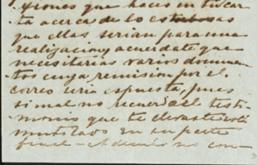 xiones que haces en tu car
ta acerca de lo costosas
que ellas serian para una
realizacion, acuerdate que
necesitarias varios documen
tos cuya remision por el
correo seria espuesta, pues
si mal no recuerdo el testi
monio que te
en su parte
final. Ademas no con